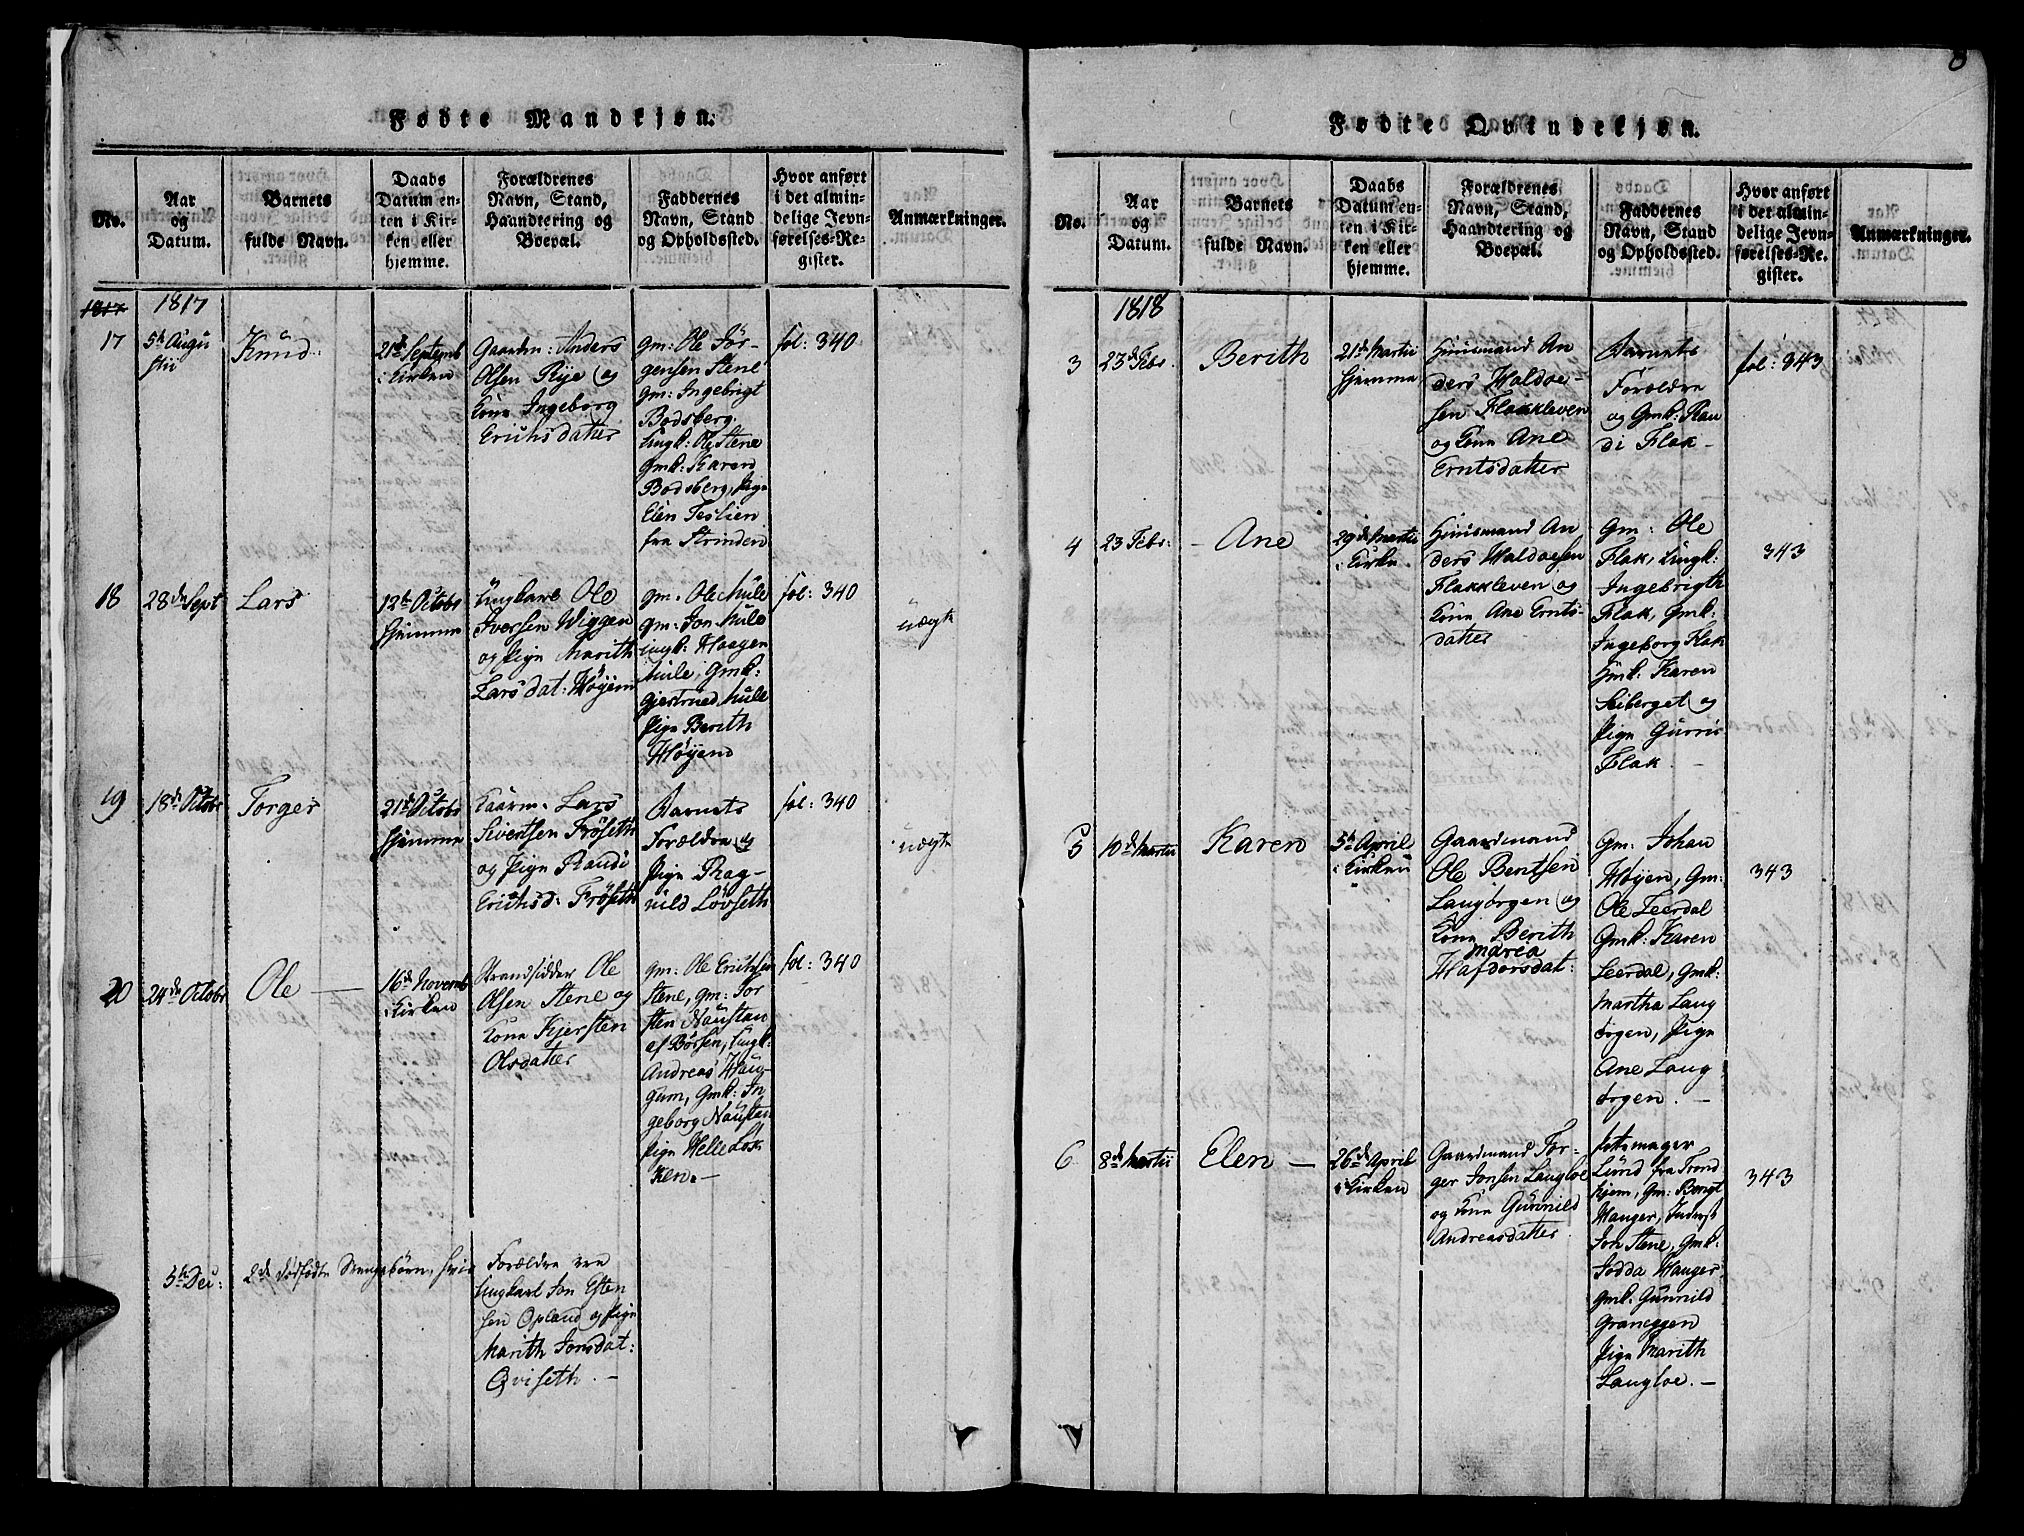 Fødte Mandkjøn.
No.
Aar
og
Datum.
Barnets
fulde Navn.
Daabs
Datum en-
ten i Kir-
ken eller
hjemme.
Forældrenes
Navn, Stand,
Haandtering og
Boepæl.
Faddernes
Navn, Stand
og Opholdssted.
Hvor anført
i det almin-
delige Jevn-
førelses-Re-
gister.
Anmærkninger.
1817
1817
17
5te Augu
stii
Knud
21de Septemb
i Kirken
Gaardm: Anders
Olsen Rye og
Kone Ingeborg
Erichsdatter
gm: Ole Jör-
gensen Stene
gm: Ingebrigt
Bodsberg
Ungk: Ole Stene
Gmk: Karen
Bodsberg, Pige
Elen Teslien
fra Strinden
fol: 340
18
28de Sept
Lars
12te Octobr
hjemme
Ungkarl Ole
Iversen Wiggen
og Pige Marith
Larsdat: Höyem
gm. Ole Mule
gm: Jon Mule
ungk: Haagen
Mule, Gmk:
Gjertrued Mule
Pige Berith
Höyem
fol: 340
uægte
19
18de Octobr
Torger
21de Octobr
hjemme
Lars
Sivertsen Fröseth
og Pige Randi
Erichsd: Fröseth
Barnets
Forældre og
Pige Rag-
nild Lövseth
fol: 340
uægte
20
24de Octobr
Ole —
16de Novemb
i Kirken
Strandsidder Ole
Olsen Stene og
Kone Kjersten
Olsdatter
gm: Ole Erichsen
Stene, gm: Tor
sten Naustan
af Börsen, Ungk:
Andreas Haug-
um, Gmk: In
geborg Naustan
Pige Helle Lök
ken. —
fol: 340
5te Dec:
2de dødfødte Drengebörn, hvis
Forældre ere
Ungkarl Jon Esten
sen Opland og Pige
Marith Jonsdat:
Qviseth. —
8
Fødte Qvindekjøn.
No.
Aar
og
Datum.
Barnets
fulde Navn.
Daabs
Datum en-
ten i Kir-
ken eller
hjemme.
Forældrenes
Navn, Stand,
Haandtering og
Boepæl.
Faddernes
Navn, Stand
og Opholdssted.
Hvor anført
i det almin-
delige Jevn-
førelses-Re-
gister.
Anmærkninger.
1818
3
23de Febr.
Berith
21de Martii
hjemme
Huusmand An
ders Haldoe-
sen Flakkleven
og Kone Ane
Erntsdatter
Barnets
Forældre
og Gmk: Ran
di Flak —
fol: 343
4
23 Febr:
— Ane
29de Martii
i Kirken
Huusmand An
ders Haldoesen
Flakkleven og
Kone Ane Ernts
datter
Gm: Ole
Flak, Ungk:
Ingebrigth
Flak, Gmk:
Ingeborg Flak
Gmk. Karen
Seiberget og
Pige Gurru
Flak
343
5
10de Martii
Karen
5te April
i Kirken
Gaardmand
Ole Bentsen
Langörgen og
Kone Berith
Marea
Hafdorsdat:
Gm: Johan
Höyen, Gm:
Ole Leerdal
Gmk: Karen
Leerdal, Gmk:
Martha Lang
örgen, Pige
Ane Lang
örgen. —
343
6
8de Martii
Elen —
26de April
i Kirken
Gaardmand Tor-
ger Jonsen Langloe
og Kone Gunnild
Andreasdatter
Pottemager
Lund fra Trond
hjem, Gm: Bengt
Hauger, Inderst
Jon Stene, Gmk:
Jodda Hauger
Gmk: Gunnild
Graneggen
Pige Marith
Langloe. —
343